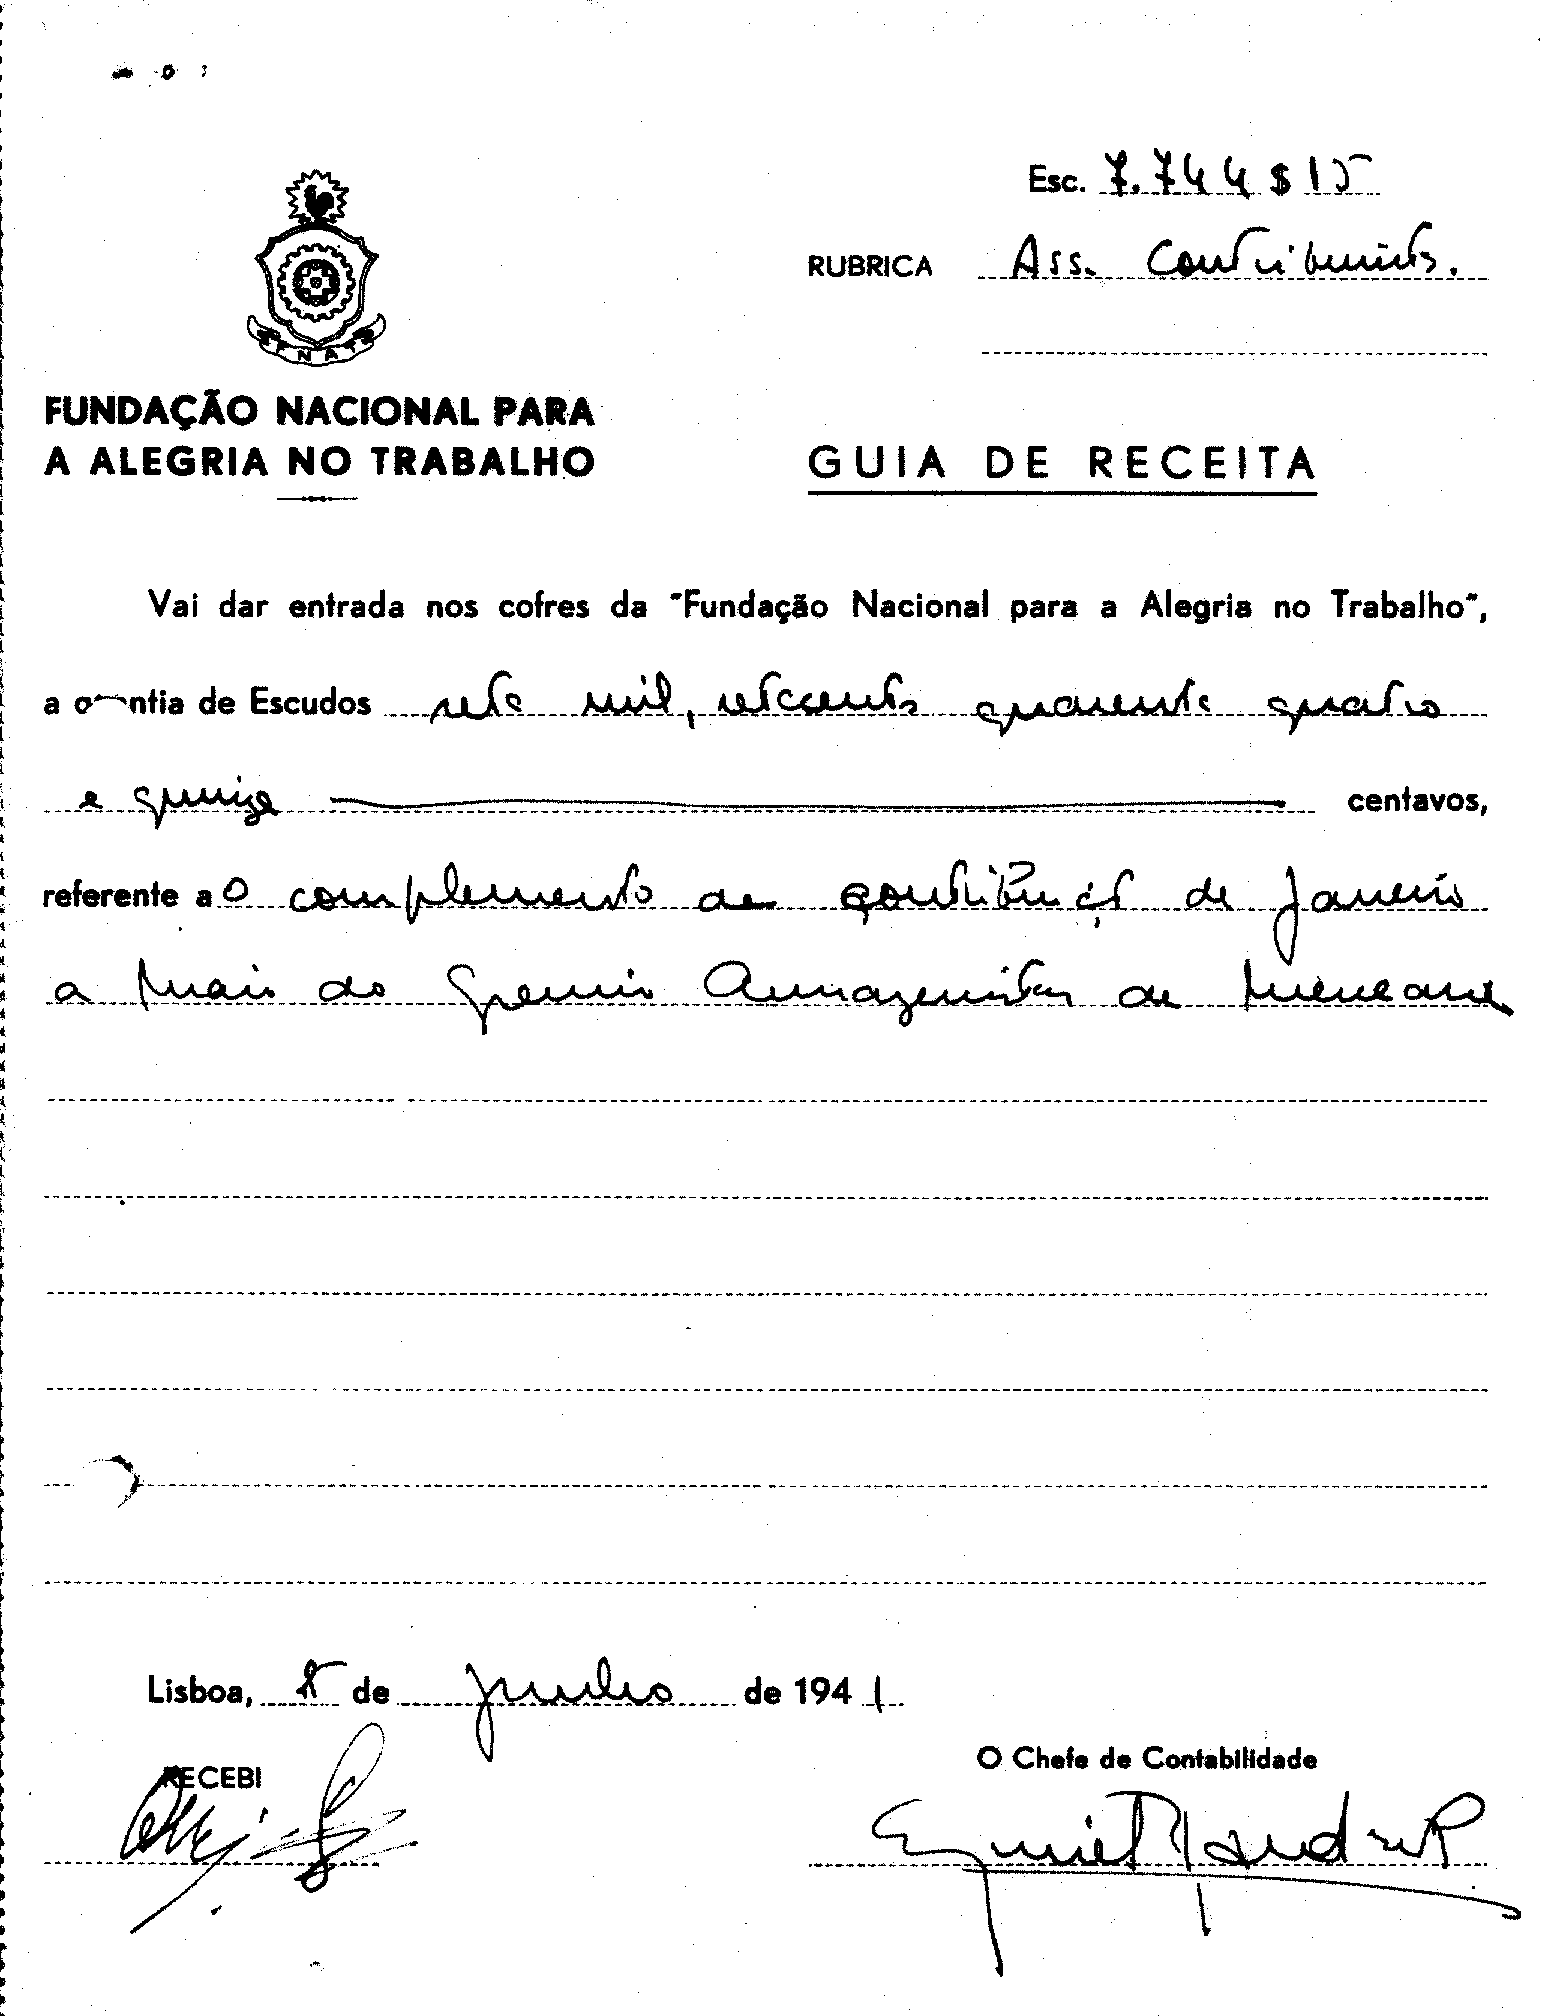 Esc. 7.744$15
RUBRICA Ass. Contribuintes.
FNAT
FUNDAÇÃO NACIONAL PARA
A ALEGRIA NO TRABALHO
GUIA DE RECEITA
Vai dar entrada nos cofres da "Fundação Nacional para a Alegria no Trabalho",
a quantia de Escudos sete mil, setecentos quarenta quatro
e quinze centavos,
referente a o complemento de de Janeiro
a Maio do Gremio Armazenistas de Mercearia
Lisboa, de Junho de 1941
RECEBI
O Chefe de Contabilidade